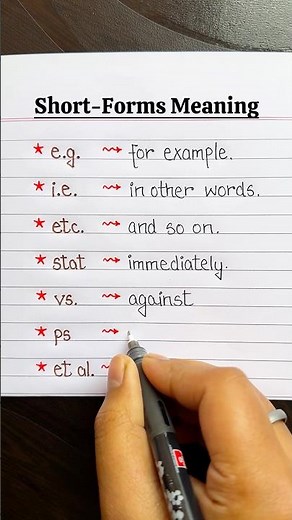 Short-Forms Meaning
* e.g. ⇝ for example.
* i.e. ⇝ in other words.
* etc. ⇝ and so on.
* stat ⇝ immediately.
* vs. ⇝ against
* ps ⇝
* et al. ⇝